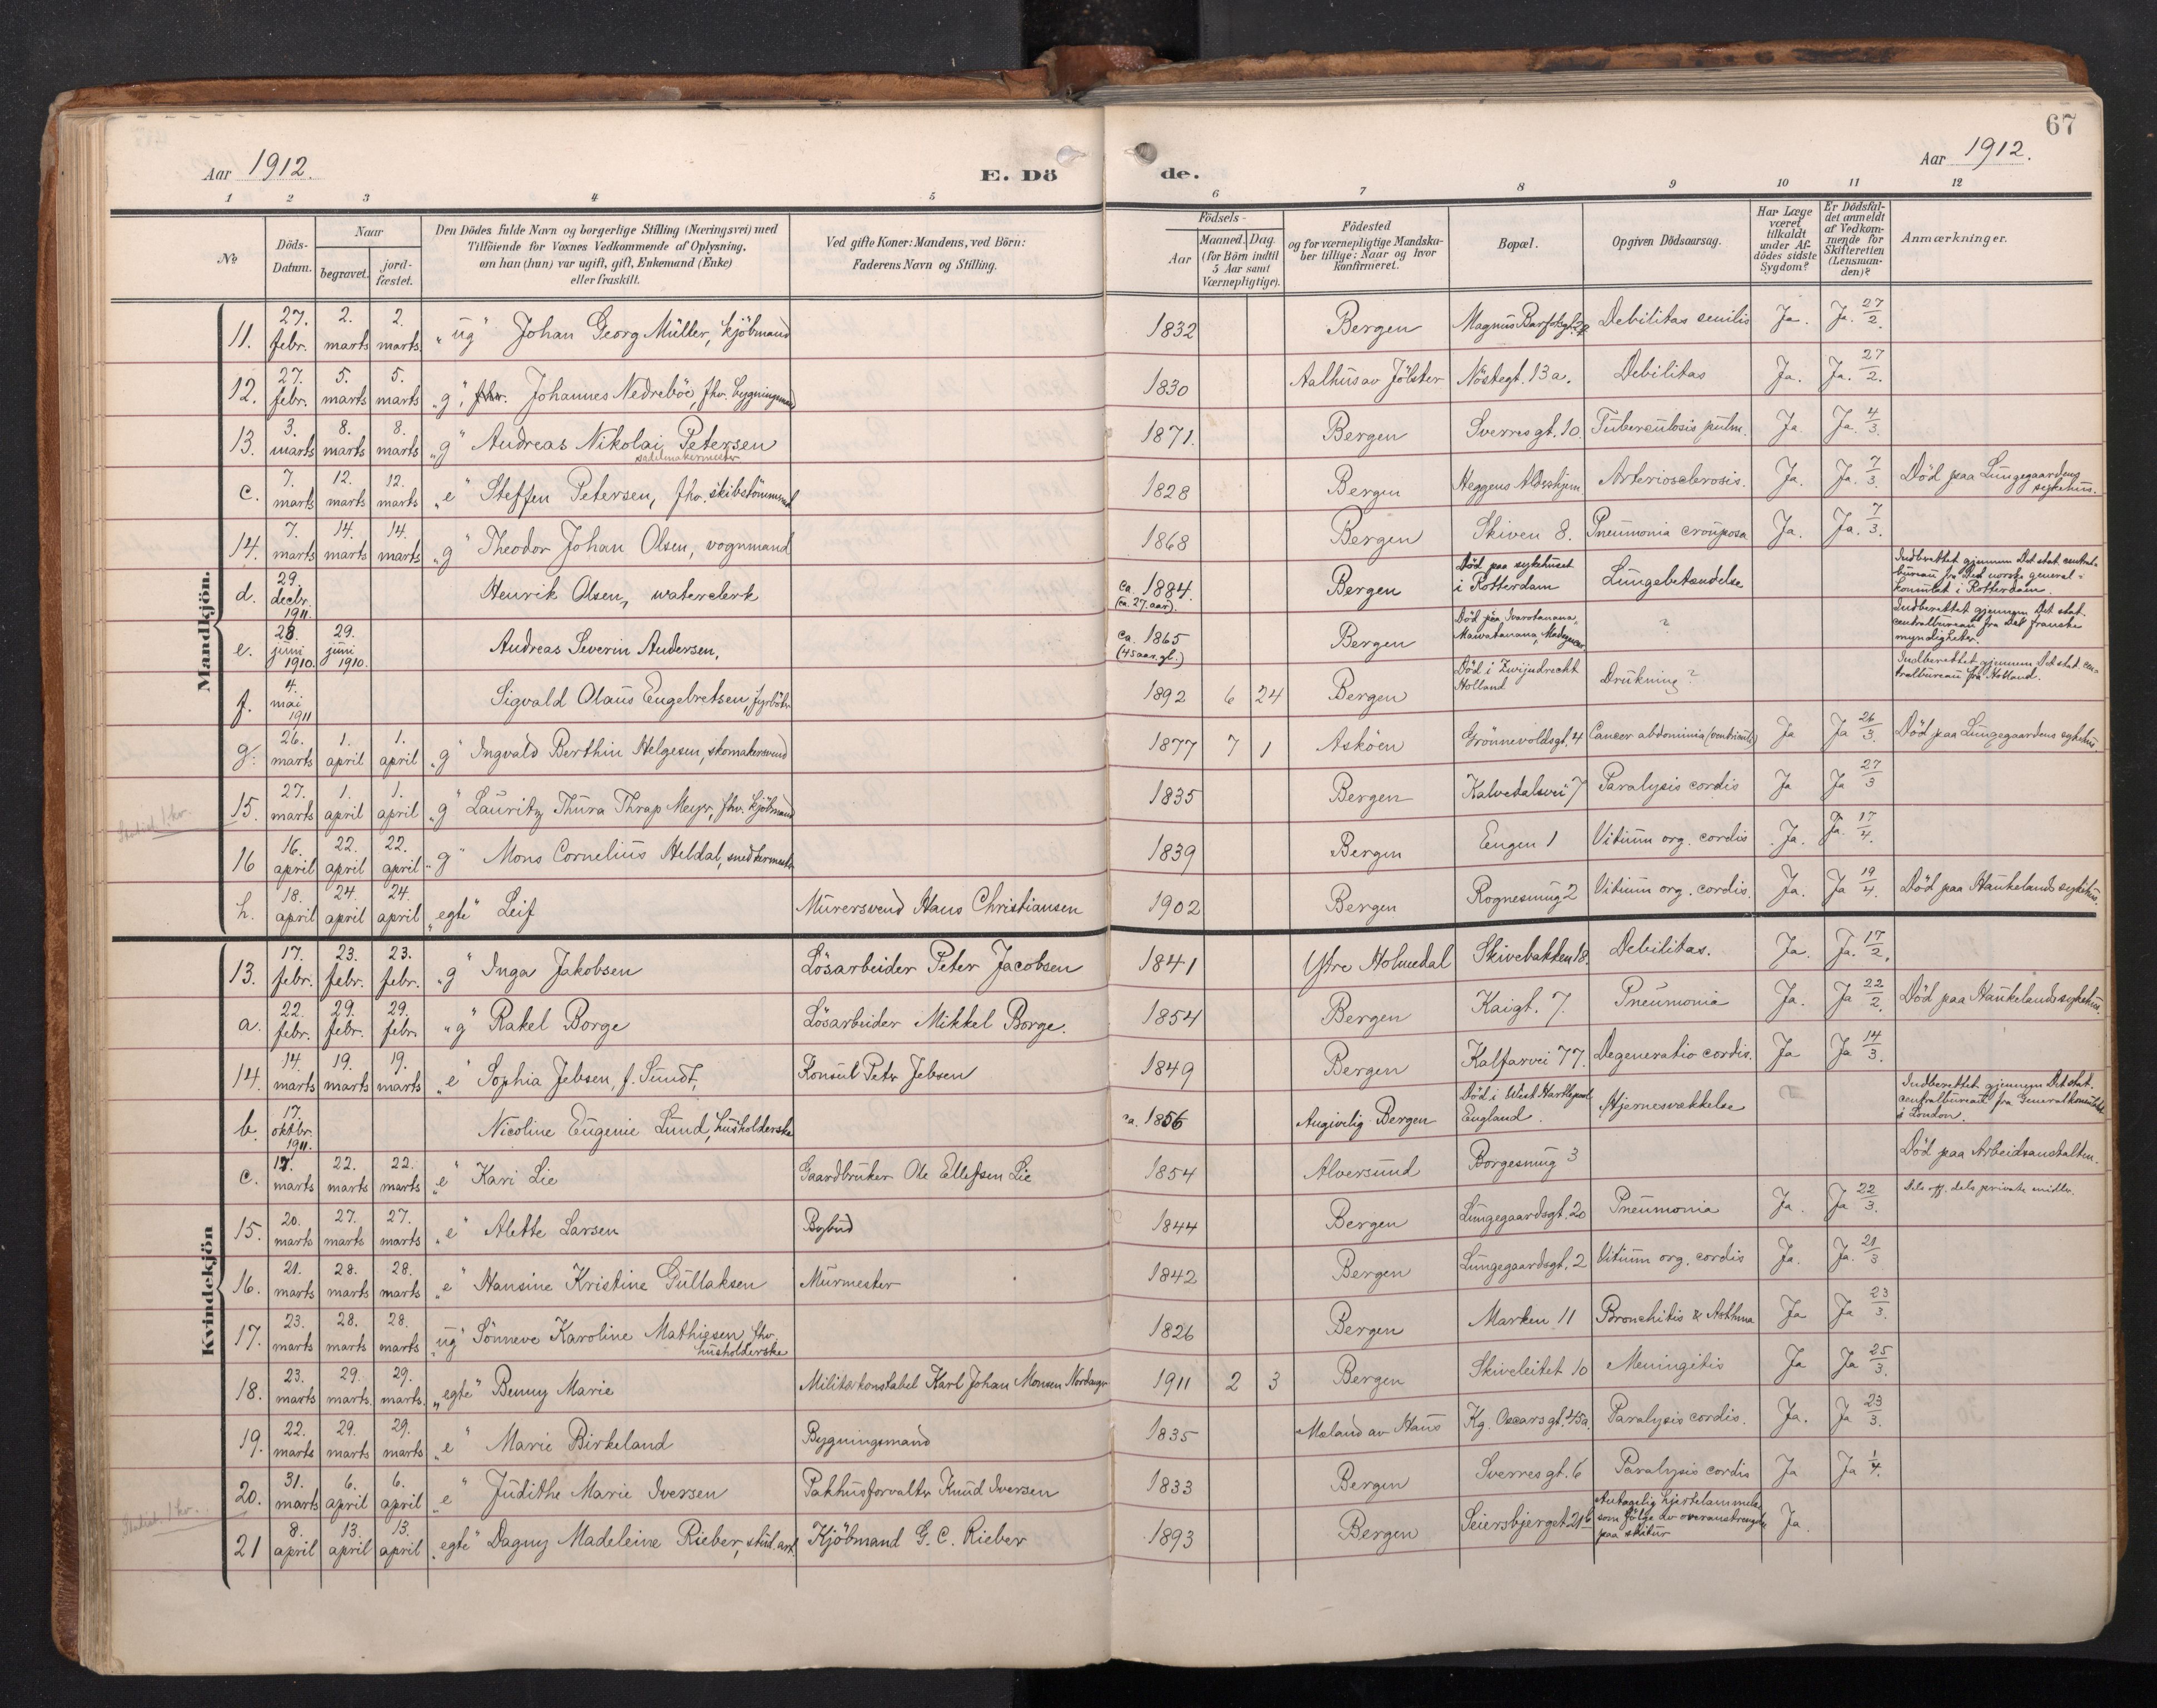 67
Aar 1912.
E. Dö
de.
Aar 1912.
1 2 3 4 5 6 7 8 9 10 11 12
№
Döds-Datum.
Naar
begravet.
jord-fæstet.
Den Dödes fulde Navn og borgerlige Stilling (Næringsvei) med
Tilföiende for Voxnes Vedkommende af Oplysning,
om han (hun) var ugift, gift, Enkemand (Enke)
eller fraskilt.
Ved gifte Koner: Mandens, ved Börn:
Faderens Navn og Stilling.
Födsels-
Aar
Maaned. Dag.
(for Börn indtil
5 Aar samt
Værnepligtige).
Födested
og for værnepligtige Mandska-
ber tillige: Naar og hvor
konfirmeret.
Bopæl.
Opgiven Dödsaarsag.
Har Læge
været
tilkaldt
under Af-
dödes sidste
Sygdom?
Er Dödsfal-
det anmeldt
af Vedkom-
mende for
Skifteretten
(Lensman-
den)?
Anmærkninger.
Mandkjön.
11. 27. febr. 2. marts 2. marts. "ug" Johan Georg Müller, kjöbmand 1832 Bergen Magnus Barfotsgt. Debilitas senilis Ja. Ja. 27/2.
12. 27. febr. 5. marts 5. marts "g", fhv. Johannes Nedreböe, fhv. bygningsmand 1830 Aalhus av Jölster Nöstegt. 13a. Debilitas Ja. Ja. 27/2.
13. 3. marts 8. marts 8. marts "g" Andreas Nikolai Petersen
salmakermester 1871. Bergen Sverresgt. 10. Tuberculosis pulm. Ja. Ja. 4/3.
c. 7. marts 12. marts 12. marts "e" Steffen Petersen, fhv. skibstömmerd 1828 Bergen Heggens Aldershjem Arteriosclerosis. Ja. Ja. 7/3. Död paa Lungegaardens sykehus.
14. 7. marts 14. marts 14. marts "g" Theodor Johan Olsen, vognmand 1868 Bergen Skiven 8. Pneumonia crouposa Ja. Ja. 7/3.
d. 29. decbr. 1911. Henrik Olsen, waterclerk ca. 1884. (ca. 27. aar). Bergen Död paa sykehuset i Rotterdam Lungebetændelse Indberettet gjennem Det stat. central-bureau fra Det norske general-konsulat i Rotterdam.
e. 28. juni 1910. 29. juni 1910. Andreas Severin Andersen, ca. 1865 (45 aar gl.) Bergen Död paa Maivatanana, Madagascar ? Indberettet gjennem Det stat. centralbureau fra Det franske myndigheter.
f. 4. mai 1911 Sigvald Olaus Engebretsen, fyrböter 1892 6 24 Bergen Död i Zwijndrecht Holland Drukning? Indberettet gjennem Det stat. cen-tralbureau fra Holland.
g. 26. marts 1. april 1. april "g" Ingvald Berthin Helgesen, skomakersvend 1877 7 1 Asköen Grönnevoldsgt. 4 Cancer abdominis (ventriculi) Ja Ja 26/3. Död paa Lungegaardens sykehus.
15. 27. marts 1. april 1. april "g" Lauritz Thura Thrap Meyer, fhv. kjöbmand 1835 Bergen Kalvedalsvei 7 Paralysis cordis Ja Ja 27/3
16 16. april 22. april 22. april "g" Mons Cornelius Heldal, snedkermester 1839 Bergen Engen 1 Vitium org. cordis Ja. Ja. 17/4.
h. 18. april 24. april 24. april "egte" Leif Murersvend Hans Christiansen 1902 Bergen Rognesmug 2 Vitium org. cordis. Ja. Ja 19/4. Död paa Haukelands sykehus.
Kvindekjön
13. 17. febr. 23. febr. 23. febr. "g" Inga Jakobsen Lösarbeider Peter Jacobsen 1841 Ytre Holmedal Skivebakken 18. Debilitas. Ja. Ja. 17/2.
a. 22. febr. 29. febr. 29. febr. "g" Rakel Borge Lösarbeider Mikkel Borge. 1854 Bergen Kaigt. 7. Pneumonia Ja. Ja 22/2. Död paa Haukelands sykehus.
14. 14. marts 19. marts 19. marts "e" Sophia Jebsen, f. Sundt, Konsul Peter Jebsen 1849 Bergen Kalfarvei 77. Degeneratio cordis. Ja Ja 14/3.
b. 17. oktbr. 1911. Nicoline Eugenie Lund, husholderske ca. 1856 Angivelig Bergen Död i West Hartlepool England. Hjernesvækkelse Indberettet gjennem Det stat. centralbureau fra Generalkonsulatet i London.
c. 17. marts 22. marts 22. marts "e" Kari Lie Gaardbruker Ole Ellefsen Lie 1854 Alversund Borgesmug 3 Död paa Arbeidsanstalten.
15. 20. marts 27. marts 27. marts "e" Alette Larsen Bybud 1844 Bergen Lungegaardsgt. 20 Pneumonia Ja. Ja 22/3. Dels off. dels private midler.
16. 21. marts 28. marts 28. marts "e" Hansine Kristine Gullaksen Murmester 1842 Bergen Lungegaardsgt. 2 Vitium org. cordis Ja. Ja. 21/3
17. 23. marts 28. marts 28. marts "ug" Sönneve Karoline Mathiesen, fhv.
husholderske 1826 Bergen Marken 11 Bronchitis & Asthma Ja Ja 23/3.
18. 23. marts 29. marts. 29. marts. "egte" Benny Marie Militærkonstabel Karl Johan Monsen 1911 2 3 Bergen Skiveleitet 10 Meningitis Ja Ja 25/3.
19. 22. marts 29. marts 29. marts "e" Marie Birkeland Bygningsmand 1835 Mæland av Haus Kg. Oscarsgt. 45a. Paralysis cordis. Ja. Ja 23/3.
20. 31. marts 6. april 6. april "e" Judithe Marie Iversen Pakhusforvalter Knud Iversen 1833 Bergen Sverresgt. 6 Paralysis cordis Ja Ja 1/4.
21 8. april 13. april 13. april "egte" Dagny Madeleine Rieber, stud. art. Kjöbmand G. C. Rieber 1893 Bergen Seiersbjerget Antagelig hjertelammelse som fölge av overanstrengelse paa skitur Ja.